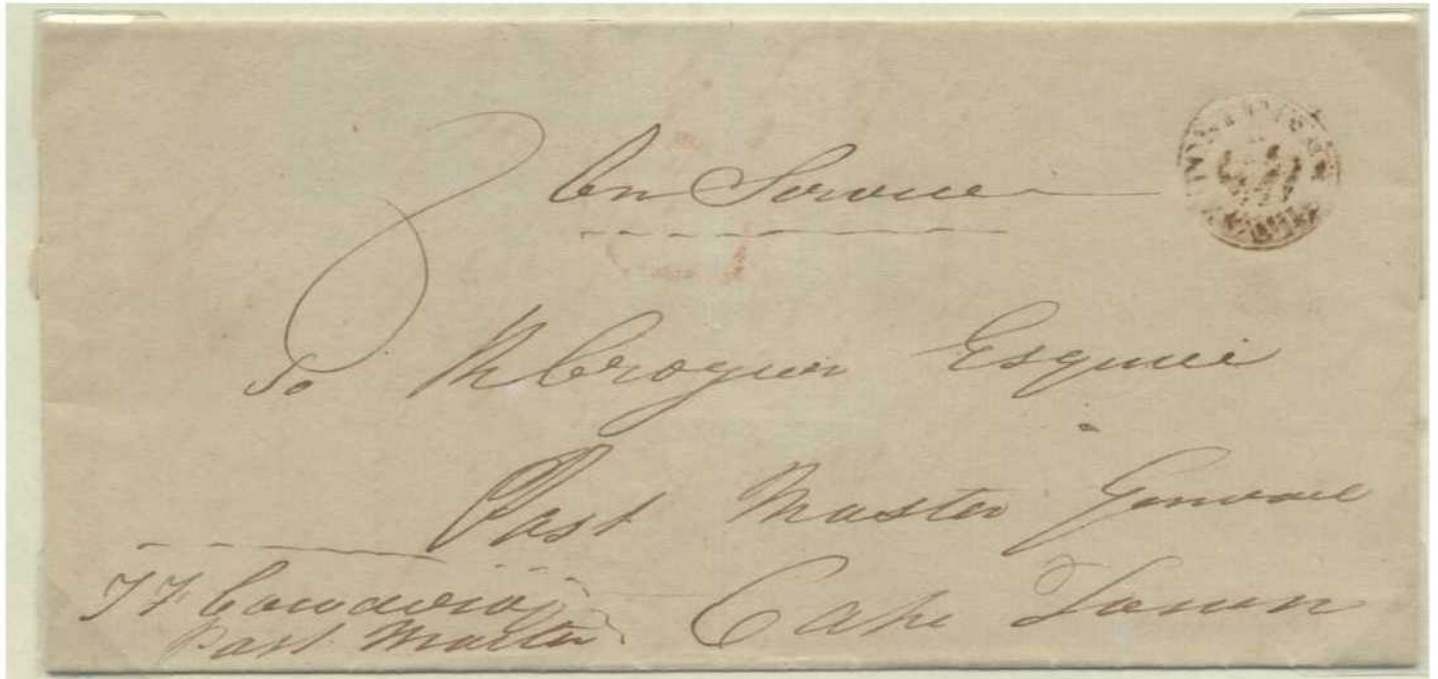 On Service
To R Crozier Esquire
Post Master General
Cape Town
Post Master